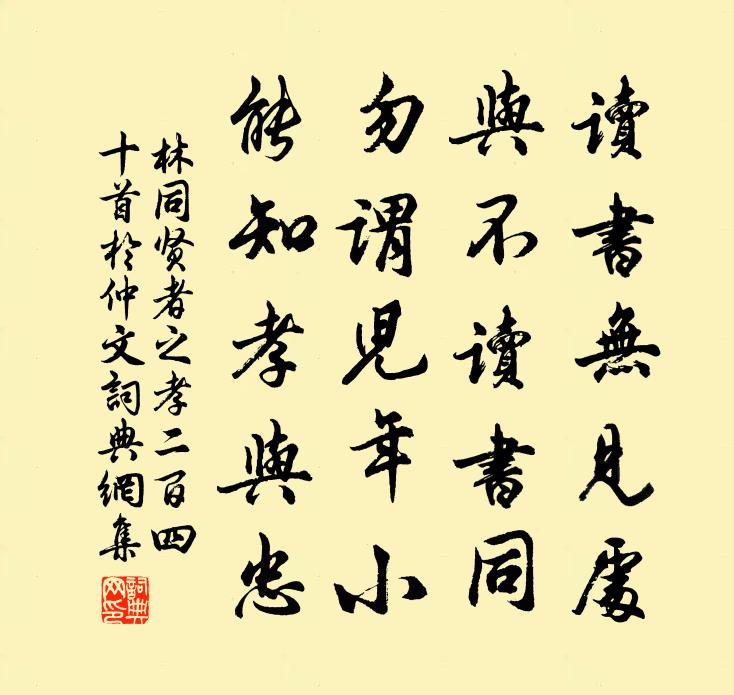 讀書無見處
與不讀書同
勿謂児年小
能知孝與忠
林同賢者之孝二百四
十首於仲文詞典網集
詞典
网印